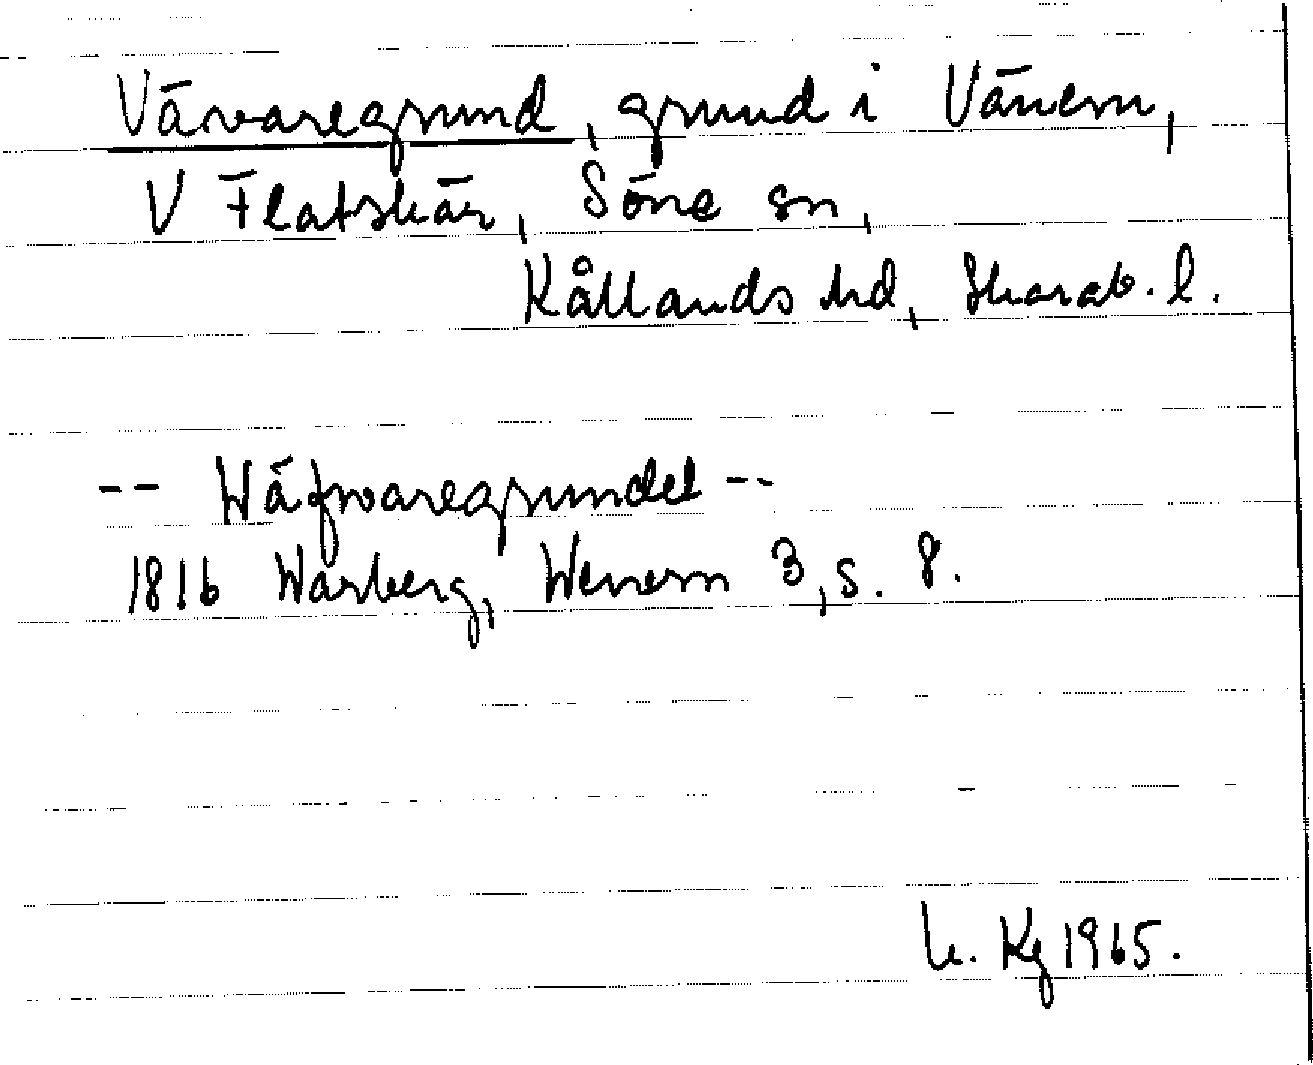 Vävaregrund, grund i Vänern,
V Flatskär, Söne sn,
Kållands hd, Skarab. l.
-- Wäfvaregrundet --
1816 Warberg, Wenern 3, s. 8.
Kg 1965.